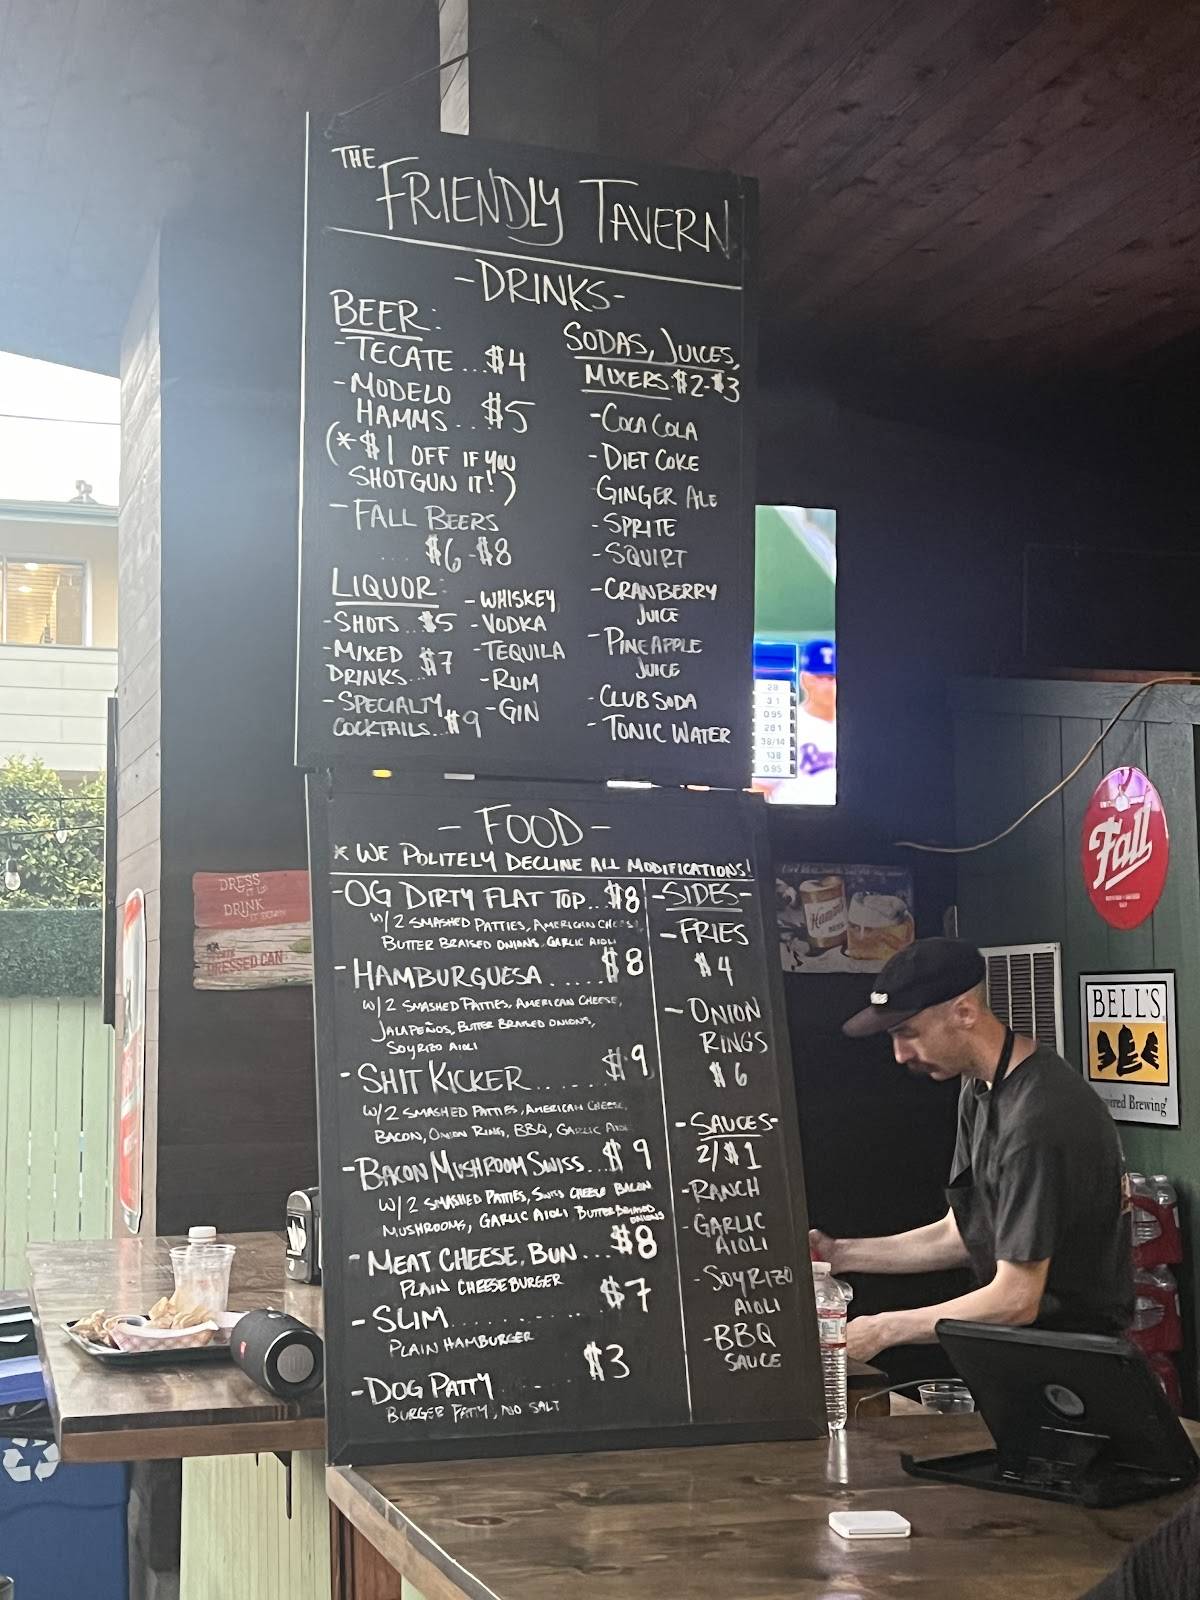 THE
FRIENDLY TAVERN
-DRINKS-
BEER:
-TECATE...$4
-MODELO
HAMMS..$5
(*$1 OFF IF YOU
SHOTGUN IT!)
-FALL BEERS
....$6-$8
LIQUOR:
-SHOTS..$5
-MIXED
DRINKS..$7
-SPECIALTY
COCKTAILS..$9
-WHISKEY
-VODKA
-TEQUILA
-RUM
-GIN
SODAS, JUICES,
MIXERS $2-$3
-COCA COLA
-DIET COKE
-GINGER ALE
-SPRITE
-SQUIRT
-CRANBERRY
JUICE
-PINEAPPLE
JUICE
-CLUB SODA
-TONIC WATER
-FOOD-
* WE POLITELY DECLINE ALL MODIFICATIONS!
-OG DIRTY FLAT TOP..$8
W/2 SMASHED PATTIES, AMERICAN CHEESE,
BUTTER BRAISED ONIONS, GARLIC AIOLI
-HAMBURGUESA.....$8
W/2 SMASHED PATTIES, AMERICAN CHEESE,
JALAPEÑOS, BUTTER BRAISED ONIONS,
SOYRIZO AIOLI
-SHIT KICKER......$9
W/2 SMASHED PATTIES, AMERICAN CHEESE,
BACON, ONION RING, BBQ, GARLIC AIOLI
-BACON MUSHROOM SWISS..$9
W/2 SMASHED PATTIES, SWISS CHEESE BACON
MUSHROOMS, GARLIC AIOLI BUTTER BRAISED
ONIONS
-MEAT CHEESE, BUN...$8
PLAIN CHEESEBURGER
-SLIM..........$7
PLAIN HAMBURGER
-DOG PATTY......$3
BURGER PATTY, NO SALT
-SIDES-
-FRIES
$4
-ONION
RINGS
$6
-SAUCES-
2/$1
-RANCH
-GARLIC
AIOLI
-SOYRIZO
AIOLI
-BBQ
SAUCE
28
3.1
0.95
28.1
38/14
138
0.95
DRESS
IT UP
DRINK
IT DOWN
DRESSED CAN
Hamm's
Fall
BELL'S
Inspired Brewing